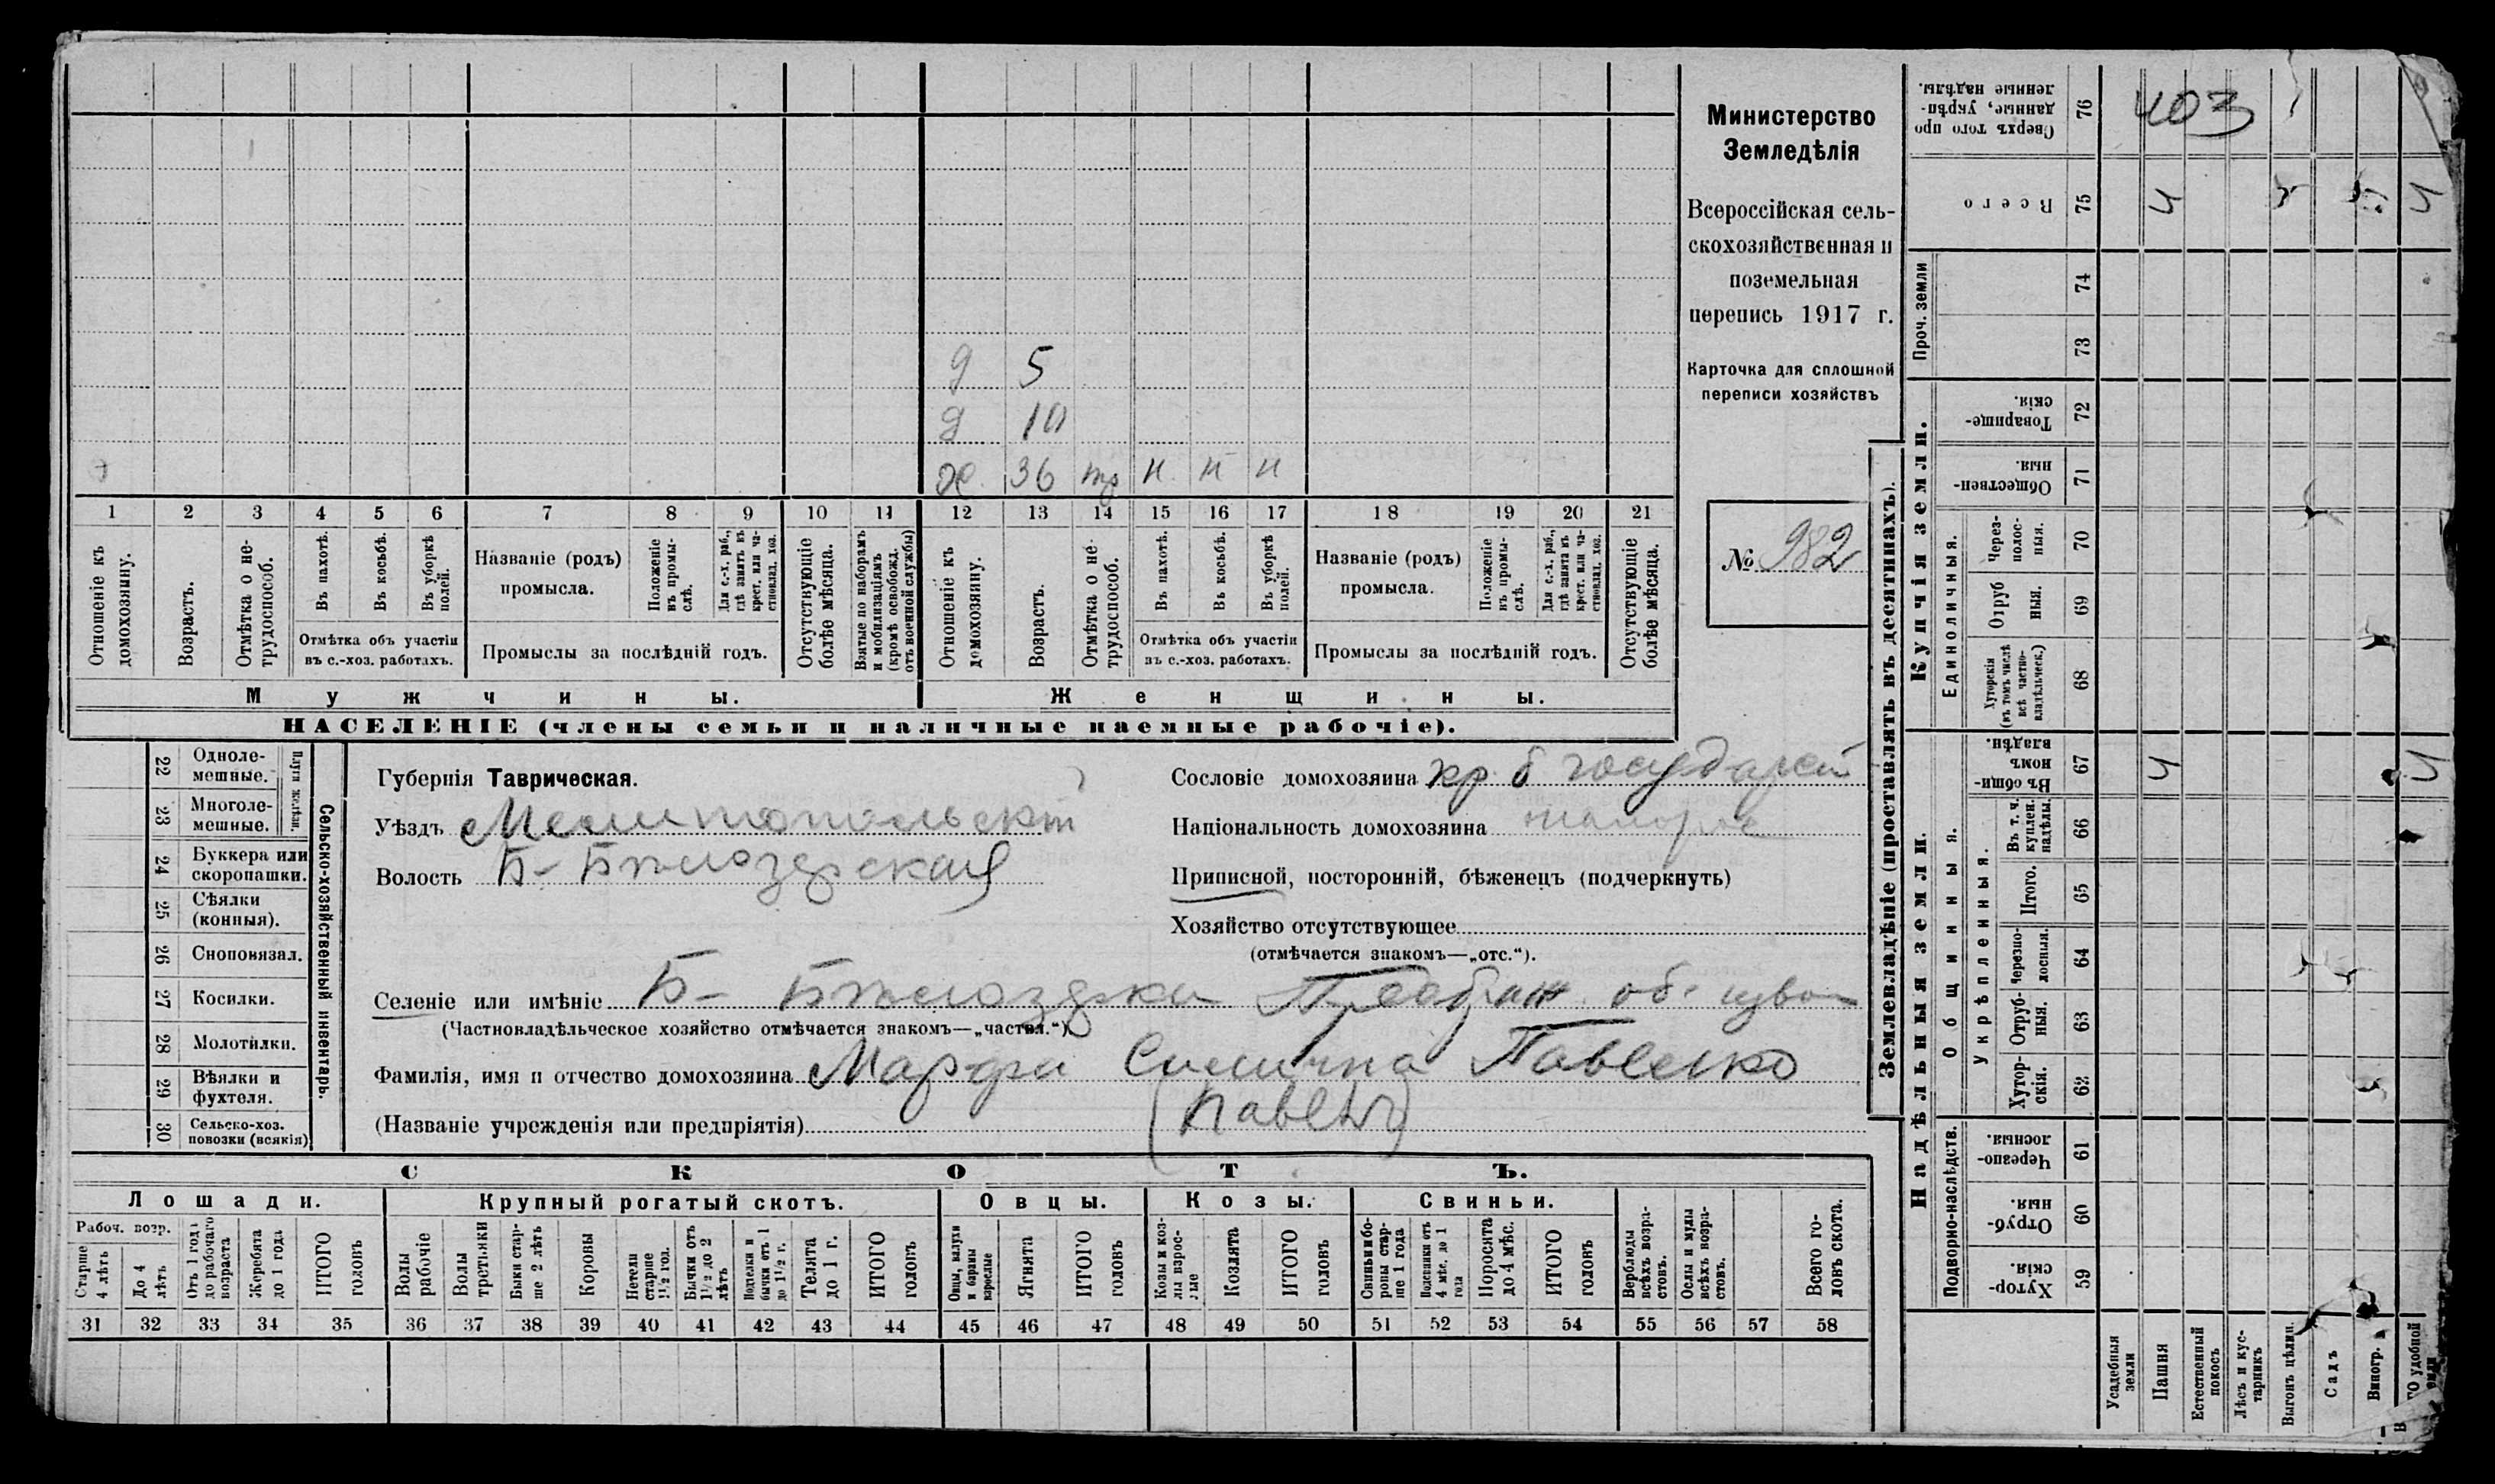 Министерство
Земледѣлія
Всероссійская сель-
скохозяйственная и
поземельная
перепись 1917 г.
Карточка для сплошной
переписи хозяйствъ
№ 982
д 5
д 10
х. 36 тр н н н
1 2 3 4 5 6 7 8 9 10 11 12 13 14 15 16 17 18 19 20 21
Отношеніе къ домохозяину.
Возрастъ.
Отмѣтка о не-трудоспособ.
Въ пахотѣ.
Въ косьбѣ.
Въ уборкѣ полей.
Отмѣтка объ участіи
въ с.-хоз. работахъ.
Названіе (родъ)
промысла.
Положеніе въ промы-слѣ.
Для с.-х. раб., гдѣ занятъ въ крест. или ча-стновлад. хоз.
Промыслы за послѣдній годъ.
Отсутствующіе болѣе мѣсяца.
Взятые по наборамъ и мобилизаціямъ (кромѣ освобожд. отъ военной службы)
Отношеніе къ домохозяину.
Возрастъ.
Отмѣтка о не-трудоспособ.
Въ пахотѣ.
Въ косьбѣ.
Въ уборкѣ полей.
Отмѣтка объ участіи
въ с.-хоз. работахъ.
Названіе (родъ)
промысла.
Положеніе въ промы-слѣ.
Для с.-х. раб., гдѣ занята въ крест. или ча-стновлад. хоз.
Промыслы за послѣдній годъ.
Отсутствующіе болѣе мѣсяца.
Мужчины.
Женщины.
НАСЕЛЕНІЕ (члены семьи и наличные наемные рабочіе).
22 Одноле-мешные.
23 Многоле-мешные.
Плуги желѣзн.
24 Буккера или скоропашки.
25 Сѣялки (конныя).
26 Сноповязал.
27 Косилки.
28 Молотилки.
29 Вѣялки и фухтеля.
30 Сельско-хоз. повозки (всякія)
Сельско-хозяйственный инвентарь.
Губернія Таврическая.
Уѣздъ Мелитопольскій
Волость Б- Бѣлозерская
Сословіе домохозяина кр б государст
Національность домохозяина
Приписной, посторонній, бѣженецъ (подчеркнуть)
Хозяйство отсутствующее
(отмѣчается знакомъ—„отс.“).
Селеніе или имѣніе Б- Бѣлозерка
(Частновладѣльческое хозяйство отмѣчается знакомъ—„частвл.“)
Фамилія, имя и отчество домохозяина Марфа Павленко
(Названіе учрежденія или предпріятія)
СКОТЪ.
Лошади.
Крупный рогатый скотъ.
Овцы.
Козы.
Свиньи.
Рабоч. возр.
Старше 4 лѣтъ
До 4 лѣтъ
Отъ 1 года до рабочаго возраста
Жеребята до 1 года
ИТОГО головъ
Волы рабочіе
Волы третьяки
Быки стар-ше 2 лѣтъ
Коровы
Нетели старше 1½ год.
Бычки отъ 1½ до 2 лѣтъ
Подтелки и бычки отъ 1 до 1½ г.
Телята до 1 г.
ИТОГО головъ
Овцы, валухи и бараны взрослые
Ягнята
ИТОГО головъ
Козы и коз-лы взрос-лые
Козлята
ИТОГО головъ
Свиньи и бо-ровы стар-ше 1 года
Подсвинки отъ 4 мѣс. до 1 года
Поросята до 4 мѣс.
ИТОГО головъ
Верблюды всѣхъ возра-стовъ.
Ослы и мулы всѣхъ возра-стовъ.
Всего го-ловъ скота.
31 32 33 34 35 36 37 38 39 40 41 42 43 44 45 46 47 48 49 50 51 52 53 54 55 56 57 58
Землевладѣніе (проставлять въ десятинахъ).
Сверхъ того про данные, укрѣп-ленные надѣлы. 76 403
Всего 75 4 4
Проч. земли 74 73
Купчія земли.
Товарище-скія. 72
Обществен-ныя. 71
Единоличныя.
Через-полос-ныя. 70
Отруб ныя. 69
Хуторскія (въ томъ числѣ всѣ частно-владѣльческ.) 68
Надѣльныя земли.
Общинныя.
Въ общи-номъ владѣн. 67 4 4
Укрѣпленныя.
Въ т. ч. куплен. надѣлы. 66
Итого. 65
Черезпо-лосныя. 64
Отруб-ныя. 63
Хутор-скія. 62
Подворно-наслѣдств.
Черезпо-лосныя. 61
Отруб-ныя. 60
Хутор-скія. 59
Усадебныя земли
Пашня
Естественный покосъ
Лѣсъ и кус-тарникъ
Выгонъ цѣлин.
Садъ
Виногр.
удобной